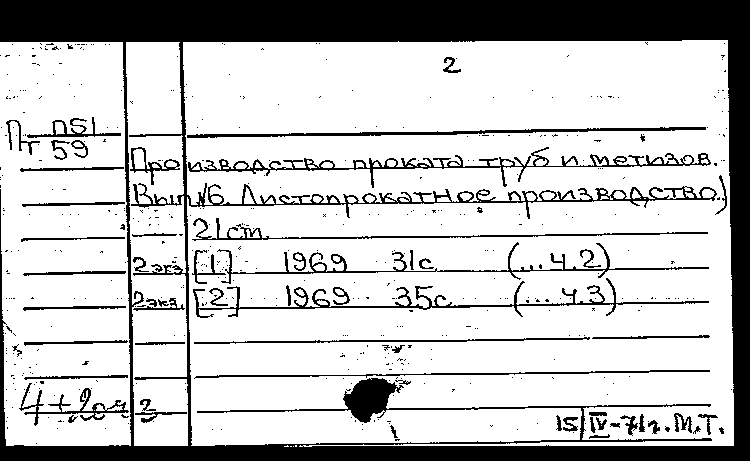 2
Пт П51
59
Производство проката труб и метизов.
Вып №6. Листопрокатное производство)
21 cm.
2 экз. [1] 1969 31с (...ч.2)
2 экз. [2] 1969 35с (...ч.3)
4+2
15/IV-71г. М.Т.